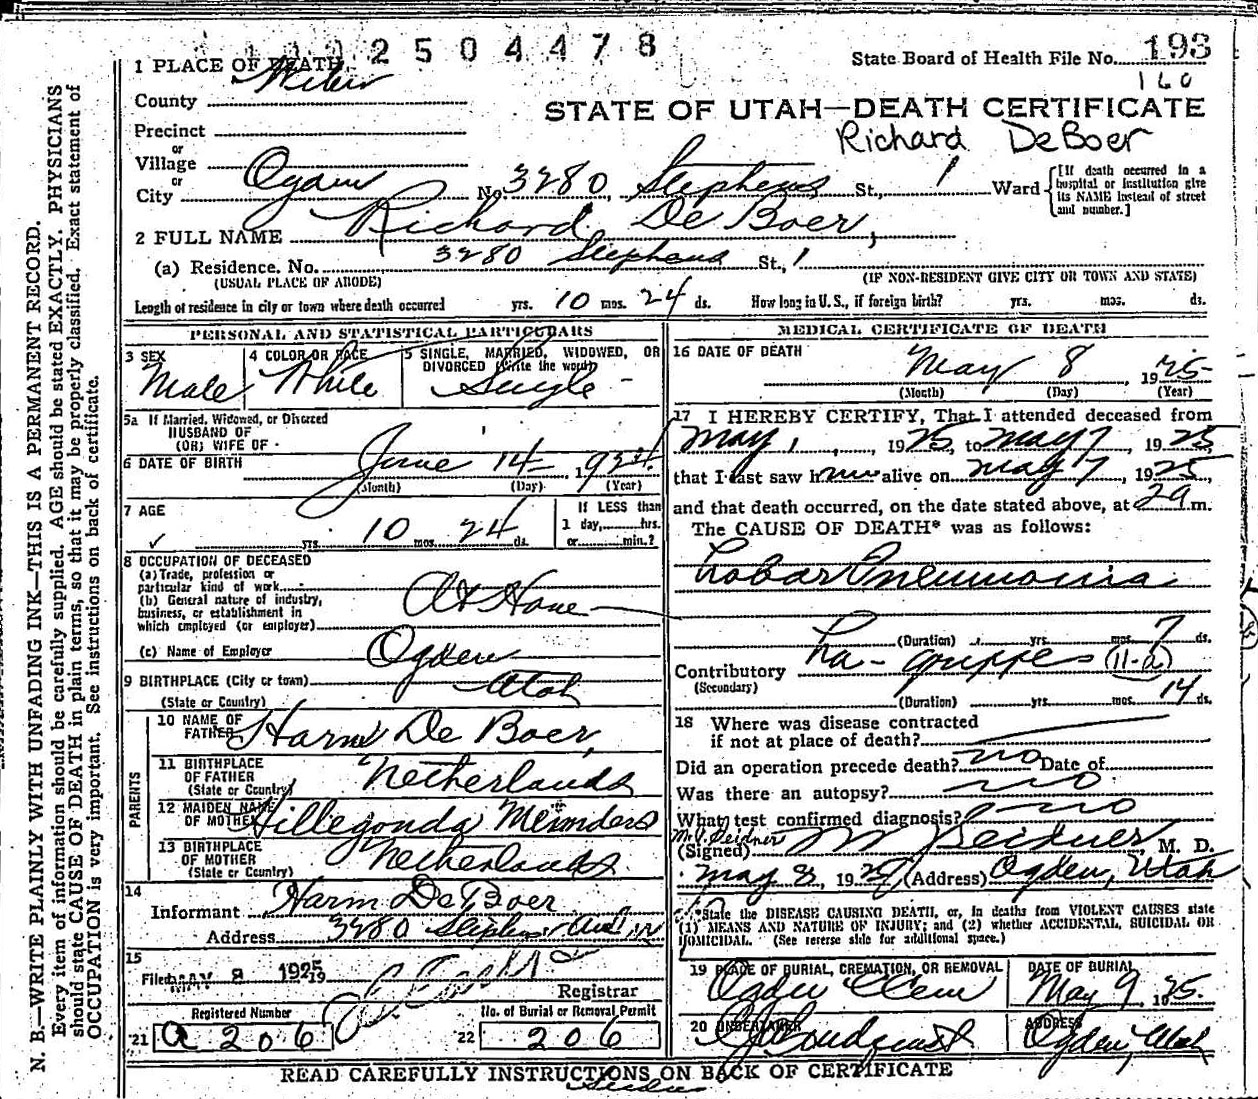 2504478
State Board of Health File No. 193
160
1 PLACE OF DEATH
Weber
County
STATE OF UTAH—DEATH CERTIFICATE
Precinct
Richard DeBoer
or
Village
or
City Ogden No. 3280 Stephens St., 1 Ward
[If death occurred in a hospital or institution give its NAME instead of street and number.]
2 FULL NAME Richard De Boer,
(a) Residence. No. 3280 Stephens St., 1
(USUAL PLACE OF ABODE) (IF NON-RESIDENT GIVE CITY OR TOWN AND STATE)
Length of residence in city or town where death occurred yrs. 10 mos. 24 ds. How long in U. S., if foreign birth? yrs. mos. ds.
PERSONAL AND STATISTICAL PARTICULARS
3 SEX 4 COLOR OR RACE 5 SINGLE, MARRIED, WIDOWED, OR DIVORCED (Write the word)
Male White Single
5a If Married, Widowed, or Divorced
HUSBAND OF
(OR) WIFE OF
6 DATE OF BIRTH June 14 1924
(Month) (Day) (Year)
7 AGE If LESS than
10 24 1 day, hrs.
yrs. mos. ds. or min.?
8 OCCUPATION OF DECEASED
(a) Trade, profession or
particular kind of work
(b) General nature of industry,
business, or establishment in
which employed (or employer)
At Home
(c) Name of Employer
Ogden
9 BIRTHPLACE (City or town)
Utah
(State or Country)
PARENTS
10 NAME OF
FATHER Harm De Boer,
11 BIRTHPLACE
OF FATHER
(State or Country) Netherlands
12 MAIDEN NAME
OF MOTHER Hillegonda Meinders
13 BIRTHPLACE
OF MOTHER
(State or Country) Netherlands.
14
Informant Harm De Boer
Address 3280 Stephens
15
Filed MAY 8 1925
Registrar
Registered Number No. of Burial or Removal Permit
21 a 206 22 206
MEDICAL CERTIFICATE OF DEATH
16 DATE OF DEATH May 8, 1925
(Month) (Day) (Year)
17 I HEREBY CERTIFY, That I attended deceased from
May 1, 1925, to May 7, 1925,
that I last saw him alive on May 7, 1925,
and that death occurred, on the date stated above, at 2 a m.
The CAUSE OF DEATH* was as follows:
Lobar Pneumonia
(Duration) yrs. mos. 7 ds.
Contributory La-grippe (11-a)
(Secondary)
(Duration) yrs. mos. 14 ds.
18 Where was disease contracted
if not at place of death?
Did an operation precede death? no Date of
Was there an autopsy? no
What test confirmed diagnosis? no
M. J. Seidner
(Signed) M J Seidner, M. D.
May 8, 192 (Address) Ogden, Utah
*State the DISEASE CAUSING DEATH, or, in deaths from VIOLENT CAUSES state
(1) MEANS AND NATURE OF INJURY; and (2) whether ACCIDENTAL, SUICIDAL OR
HOMICIDAL. (See reverse side for additional space.)
19 PLACE OF BURIAL, CREMATION, OR REMOVAL DATE OF BURIAL
Ogden Cem May 9 1925.
20 UNDERTAKER ADDRESS
Ogden, Utah
READ CAREFULLY INSTRUCTIONS ON BACK OF CERTIFICATE
N. B.—WRITE PLAINLY WITH UNFADING INK—THIS IS A PERMANENT RECORD.
Every item of information should be carefully supplied. AGE should be stated EXACTLY. PHYSICIANS
should state CAUSE OF DEATH in plain terms, so that it may be properly classified. Exact statement of
OCCUPATION is very important. See instructions on back of certificate.